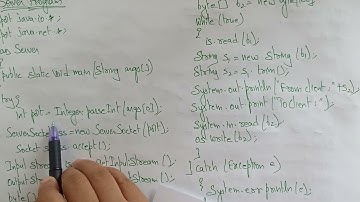 Server Program
import java.io.*;
import java.net.*;
class Server
{
public static void main (String args[])
{
try {
int port = Integer.parseInt (args[0]);
ServerSocket ss = new ServerSocket (port);
Socket s = ss.accept ();
InputStream getInputStream ();
outputStream getOutputStream ();
byte[]
byte [] b2 = new byte
while (true)
{
is.read (b1);
String s1 = new String (b1);
String s2 = s1.trim ();
System.out.println ("From client:" + s2);
System.out.print ("To client:");
System.in.read (b2);
os.write (b2);
}
} catch (Exception e)
{
System.err.println (e);